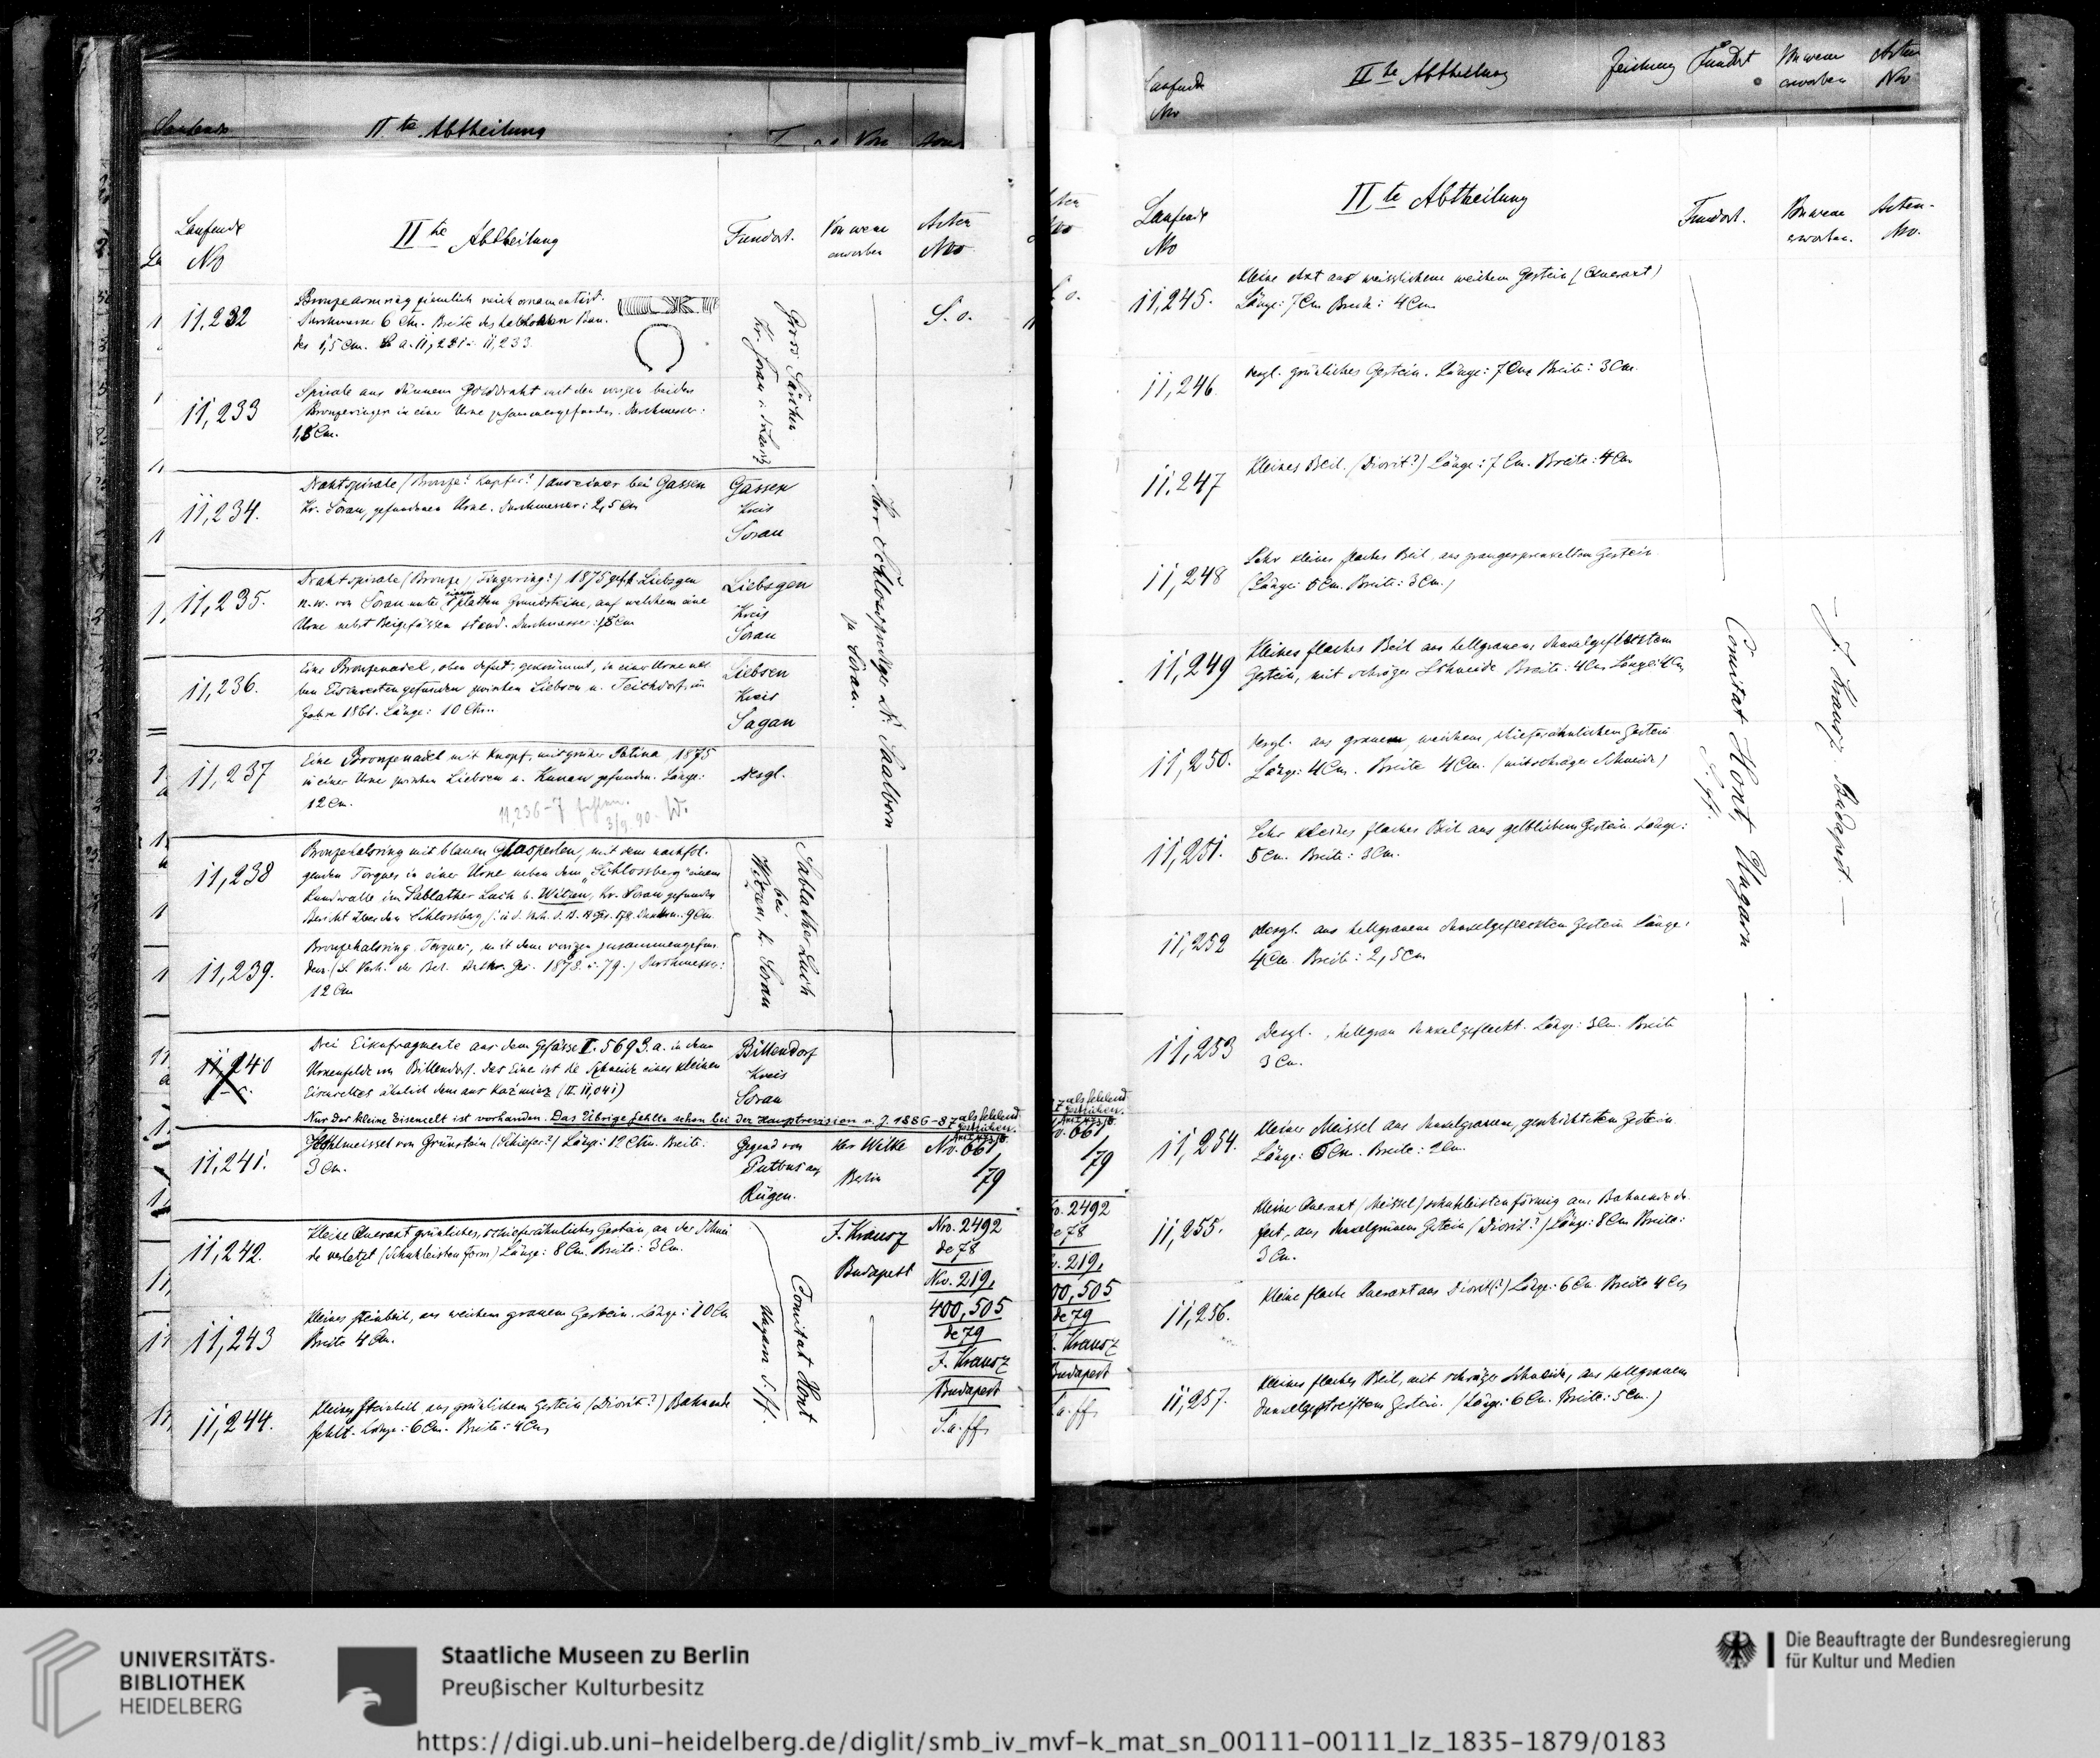 IIte Abtheilung
Laufende
No
IIte Abtheilung
Fundort.
Von wem
erworben
Acten
No
11,232
Bronzearmring ziemlich reich ornamentirt.
Durchmesser 6 Cm. Breite des
des 1,5 Cm. a. 11,231 u. 11,233.
Gross Särchen
Kr. Sorau
S. o.
11,233
Spirale aus dünnem Golddraht mit den vorigen beiden
Bronzeringen in einer Urne zusammengefunden. Durchmesser:
1,5 Cm.
11,234.
Drahtspirale (Bronze? Kupfer?) aus einer bei Gassen
Kr. Sorau, gefundenen Urne. Durchmesser: 2,5 Cm
Gassen
Kreis
Sorau
Herr Schlossprediger Saalborn
zu Sorau.
11,235.
Drahtspirale (Bronze, Fingerring?) 1875 Liebsgen
n.w. von Sorau unter einem platten Grundsteine, auf welchem eine
Urne nebst Beigefässen stand. Durchmesser: 1,5 Cm
Liebsgen
Kreis
Sorau
11,236.
Eine Bronzenadel, oben defect, gekrümmt, in einer Urne
ben Eisenresten gefunden zwischen Liebsen u. Teichdorf, im
Jahre 1861. Länge: 10 Ctm.
Liebsen
Kreis
Sagan
11,237
Eine Bronzenadel mit Knopf, mit grüner Patina, 1875
in einer Urne zwischen Liebsen u. Kunau gefunden. Länge:
12 Cm.
desgl.
11,236-7 fehlen.
3/9. 90. W.
11,238
Bronzehalsring mit blauen Glasperlen, mit dem nachfol-
genden Torques in einer Urne neben dem „Schlossberg" einem
Rundwalle im Sablather Lach b. Witzen, Kr. Sorau gefunden
Bericht über den Schlossberg 9 Cm.
Sablather Lach
bei
Witzen, Kr. Sorau
11,239.
Bronzehalsring, Torques, mit dem vorigen zusammengefun-
den. (S. Verh. der Berl. Anthr. Ges. 1878 u. 79.) Durchmesser:
12 Cm
11,240
Drei Eisenfragmente aus dem Gefässe II. 5693.a. in dem
Urnenfelde von Billendorf. Das Eine ist die Schneide eines kleinen
Eisenceltes ähnlich dem aus Kaźmierz (II. 11,041)
Billendorf
Kreis
Sorau
Nur der kleine Eisencelt ist vorhanden. Das Übrige fehlte schon bei der Hauptrevision v. J. 1886-87 als fehlend
gestrichen.
11,241.
Hohlmeissel von Grünstein (Schiefer?) Länge: 12 Ctm. Breite:
3 Cm.
Gegend von
Putbus auf
Rügen.
Herr Wilke
Berlin
No. 661
/79
11,242.
Kleine Queraxt grünliches, schieferähnliches Gestein, an der Schnei-
de verletzt (Schuhleistenform) Länge: 8 Cm. Breite: 3 Cm.
J. Krausz
Budapest
Nro. 2492
de 78
No. 219,
400, 505
de 79
J. Krausz
Budapest
S. a. ff.
Comitat Hont
Ungarn S. ff.
11,243
Kleines Steinbeil, aus weichem grauem Gestein. Länge: 10 Cm
Breite 4 Cm.
11,244.
Kleines Steinbeil, aus grünlichem Gestein (Diorit?) Bahnende
fehlt. Länge: 6 Cm. Breite: 4 Cm
Laufende
No
IIte Abtheilung
Zeichnung
Fundort
Von wem
erworben
Acten
No
Laufende
No
IIte Abtheilung
Fundort.
Von wem
erworben.
Acten-
No.
11,245.
Kleine Axt aus weisslichem weichem Gestein (Queraxt)
Länge: 7 Cm Breite: 4 Cm
11,246
desgl. grünliches Gestein. Länge: 7 Cm Breite: 3 Cm.
11,247
Kleines Beil. (Diorit?) Länge: 7 Cm. Breite: 4 Cm
11,248
Sehr kleines flaches Beil, aus graugesprenkeltem Gestein
(Länge: 5 Cm. Breite: 3 Cm.)
11,249
Kleines flaches Beil aus hellgrauem dunkelgeflecktem
Gestein, mit schräger Schneide Breite: 4 Cm Länge: 4 Cm
11,250.
desgl. aus grauem, weichem, schieferähnlichem Gestein
Länge: 4 Cm. Breite 4 Cm. (mit schräger Schneide)
Comitat Hont, Ungarn
S. ff.
J. Krausz. Budapest.
11,251.
Sehr kleines flaches Beil aus gelblichem Gestein. Länge:
5 Cm. Breite: 3 Cm.
11,252
desgl. aus hellgrauem dunkelgefleckten Gestein Länge:
4 Cm. Breite: 2,5 Cm
11,253
Desgl., hellgrau dunkelgefleckt. Länge: 3 Cm. Breite
3 Cm.
11,254.
Kleiner Meissel aus dunkelgrauem, geschichtetem Gestein.
Länge: 6 Cm. Breite: 2 Cm.
11,255.
Kleine Queraxt (Meissel) schuhleistenförmig am Bahnende de-
fect, aus dunkelgrünem Gestein (Diorit?) Länge: 8 Cm Breite:
3 Cm.
11,256.
Kleine flache Queraxt aus Diorit(?) Länge: 6 Cm. Breite 4 Cm
11,257.
Kleines flaches Beil, mit schräger Schneide, aus hellgrauem
dunkelgestreiftem Gestein. (Länge: 6 Cm. Breite: 5 Cm.)
UNIVERSITÄTS-
BIBLIOTHEK
HEIDELBERG
Staatliche Museen zu Berlin
Preußischer Kulturbesitz
Die Beauftragte der Bundesregierung
für Kultur und Medien
https://digi.ub.uni-heidelberg.de/diglit/smb_iv_mvf-k_mat_sn_00111-00111_lz_1835-1879/0183